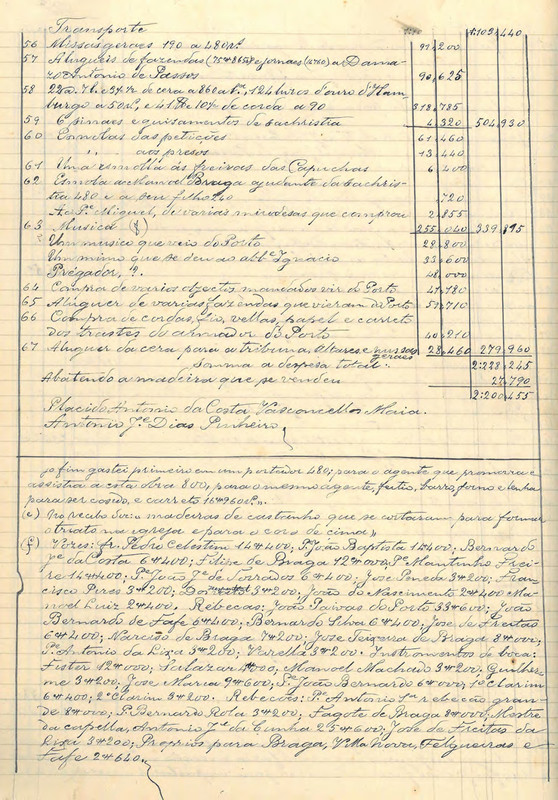 Transporte 1:103$440
56 Missas geraes 190 a 480 rs. 91,200
57 Alugueis de fazendas (75#865) e jornaes (14760) a Dama-
zo Antonio de Passos 90,625
58 de cera a 860 a lb., 124 livros d'ouro d'Ham-
burgo a 50 rs., e 41 de corda a 90 318,785
59 6 pinaes e guisamentos da sachristia 4,320 504,930
60 Esmolas das petições 61,460
" " aos presos 13,440
61 Uma esmolla ás freiras das Capuchas 6,400
62 Esmola a Manoel Braga ajudante da sachris-
tia 480 e a seu filho 240 ,720
Ao Pe. Miguel, de varias miudesas que comprou 2,855
63 Musica (f) 255,040 339,895
Um musico que veio do Porto 28,800
Um mimo que se deu ao abbe. Ignacio 33,600
Prégador, 48,000
64 Compra de varios objectos mandados vir do Porto 47,180
65 Aluguer de varias fazendas que vieram do Porto 51,710
66 Compra de cordas, fio, vellas, papel e carreto
dos trastes do armador do Porto 40,210
67 Aluguer da cera para a tribuna, altares e nas sas geraes 28,460 279,960
Somma a despesa total 2:228,245
Abatendo a madeira que se vendeu 27,790
2:200,455
Placido Antonio da Costa Vasconcellos Maia.
Antonio Je. Dias Pinheiro
jo fim gastei primeiro em um portador 480; para o agente que promoveu e
assistiu a esta obra 800, para o mesmo agente, feitio, barro, forno e lenha
para ser cosido, e carreto 16#960 rs.".
(e) No recibo diz: madeiras de castanho que se cortaram para formar
o triato na igreja e para o coro de cima"
(f) Vozes: Fr. Pedro Celestino 14#400; P. João Baptista 14#400; Bernardo
Je. da Costa 6#400; Filipe de Braga 12#000; Pe. Mantinho Frei-
re 14#400; P. João Je. de Serrados 6#400; José Peneda 3#200; Fran-
cisco Peres 3#200; 3#200, João do Nascimento 2#400 Ma-
noel Luiz 2#400. Rebecas: João Paivas do Porto 33#600; João
Bernardo de Fafe 6#400; Bernardo Silva 6#400, José de Freitas
6#400; Narciso de Braga 7#200; José Teixeira de Braga 8#000;
Pe. Antonio da Lixa 3#200; Varella 3#200. Instrumentos de boca:
Fister 12#000; Sallazar #000; Manoel Machado 3#200. Guilher-
me 3#200; José Maria 9#600; P. João Bernardo 6#000; 1º clarim
6#400; 2º clarim 3#200. Rebecões: Pe. Antonio 1º rebecão gran-
de 8#000; P. Bernardo Rola 3#200; Fagote de Braga 8#000; Mestre
da capella, Antonio Je. da Cunha 25#600; José de Freitas da
Lixa 3#200; Proprios para Braga, Va. Nova, Felgueiras e
Fafe 2#640.